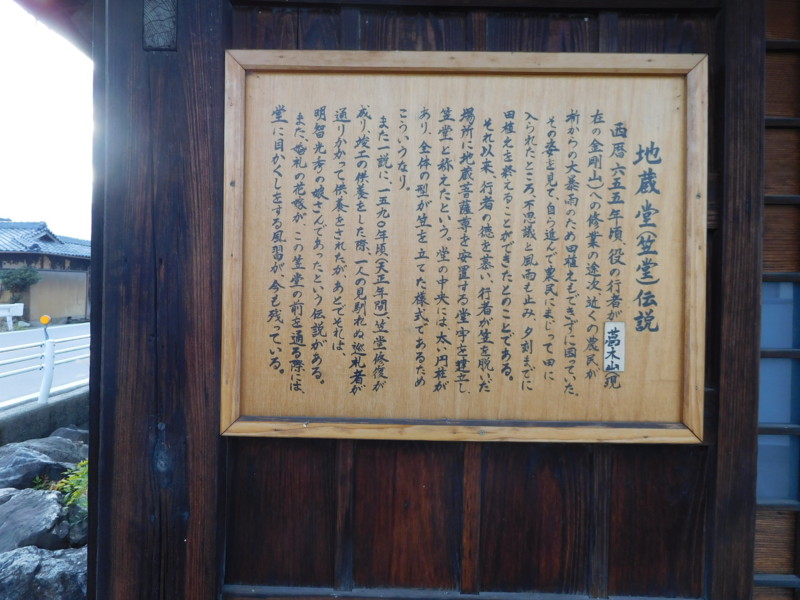 地蔵堂(笠堂)伝説
西暦六五五年頃、役の行者が葛木山(現
在の金剛山)への修業の途次、近くの農民が
折からの大暴雨のため田植えもできずに困っていた。
その姿を見て、自ら進んで農民にまじって田に
入られたところ、不思議と風雨も止み、夕刻までに
田植えを終えることができたとのことである。
それ以来、行者の徳を慕い、行者が笠を脱いだ
場所に地蔵菩薩尊を安置する堂宇を建立し
笠堂と称えたという。堂の中央には、太い円柱が
あり、全体の型が笠を立てた様式であるため
こういうなり。
また一説に、一五九〇年頃(天正年間)笠堂修復が
成り、竣工の供養をした際、一人の見馴れぬ巡礼者が
通りかかって供養をされたが、あとでそれは、
明智光秀の娘さんであったという伝説がある。
また、婚礼の花嫁が、この笠堂の前を通る際には、
堂に目かくしをする風習が、今も残っている。